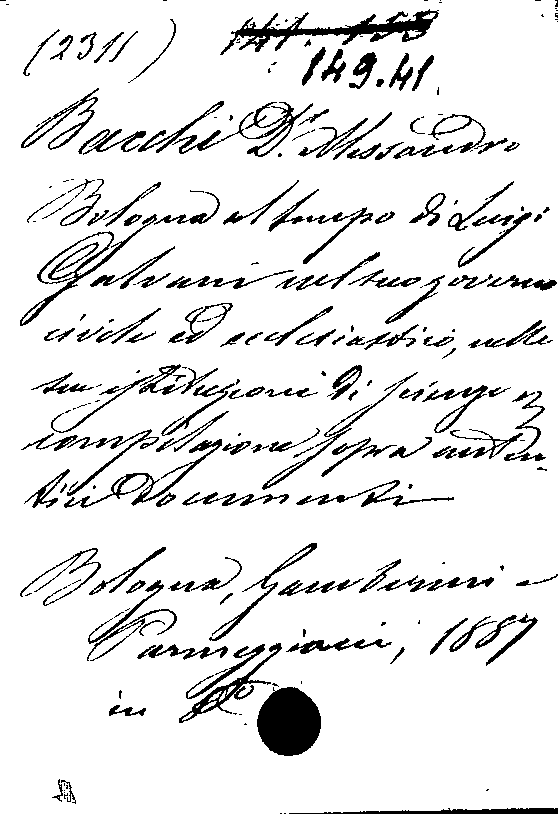 (2311) 141. 153
149.41.
Bacchi Dr. Alessandro
Bologna al tempo di Luigi
Galvani nel suo governo
civile ed ecclesiastico, nelle
sue istituzioni di scienze
compilazione sopra auten-
tici documenti
Bologna, Gamberini e
Parmeggiani, 1887
in 8º